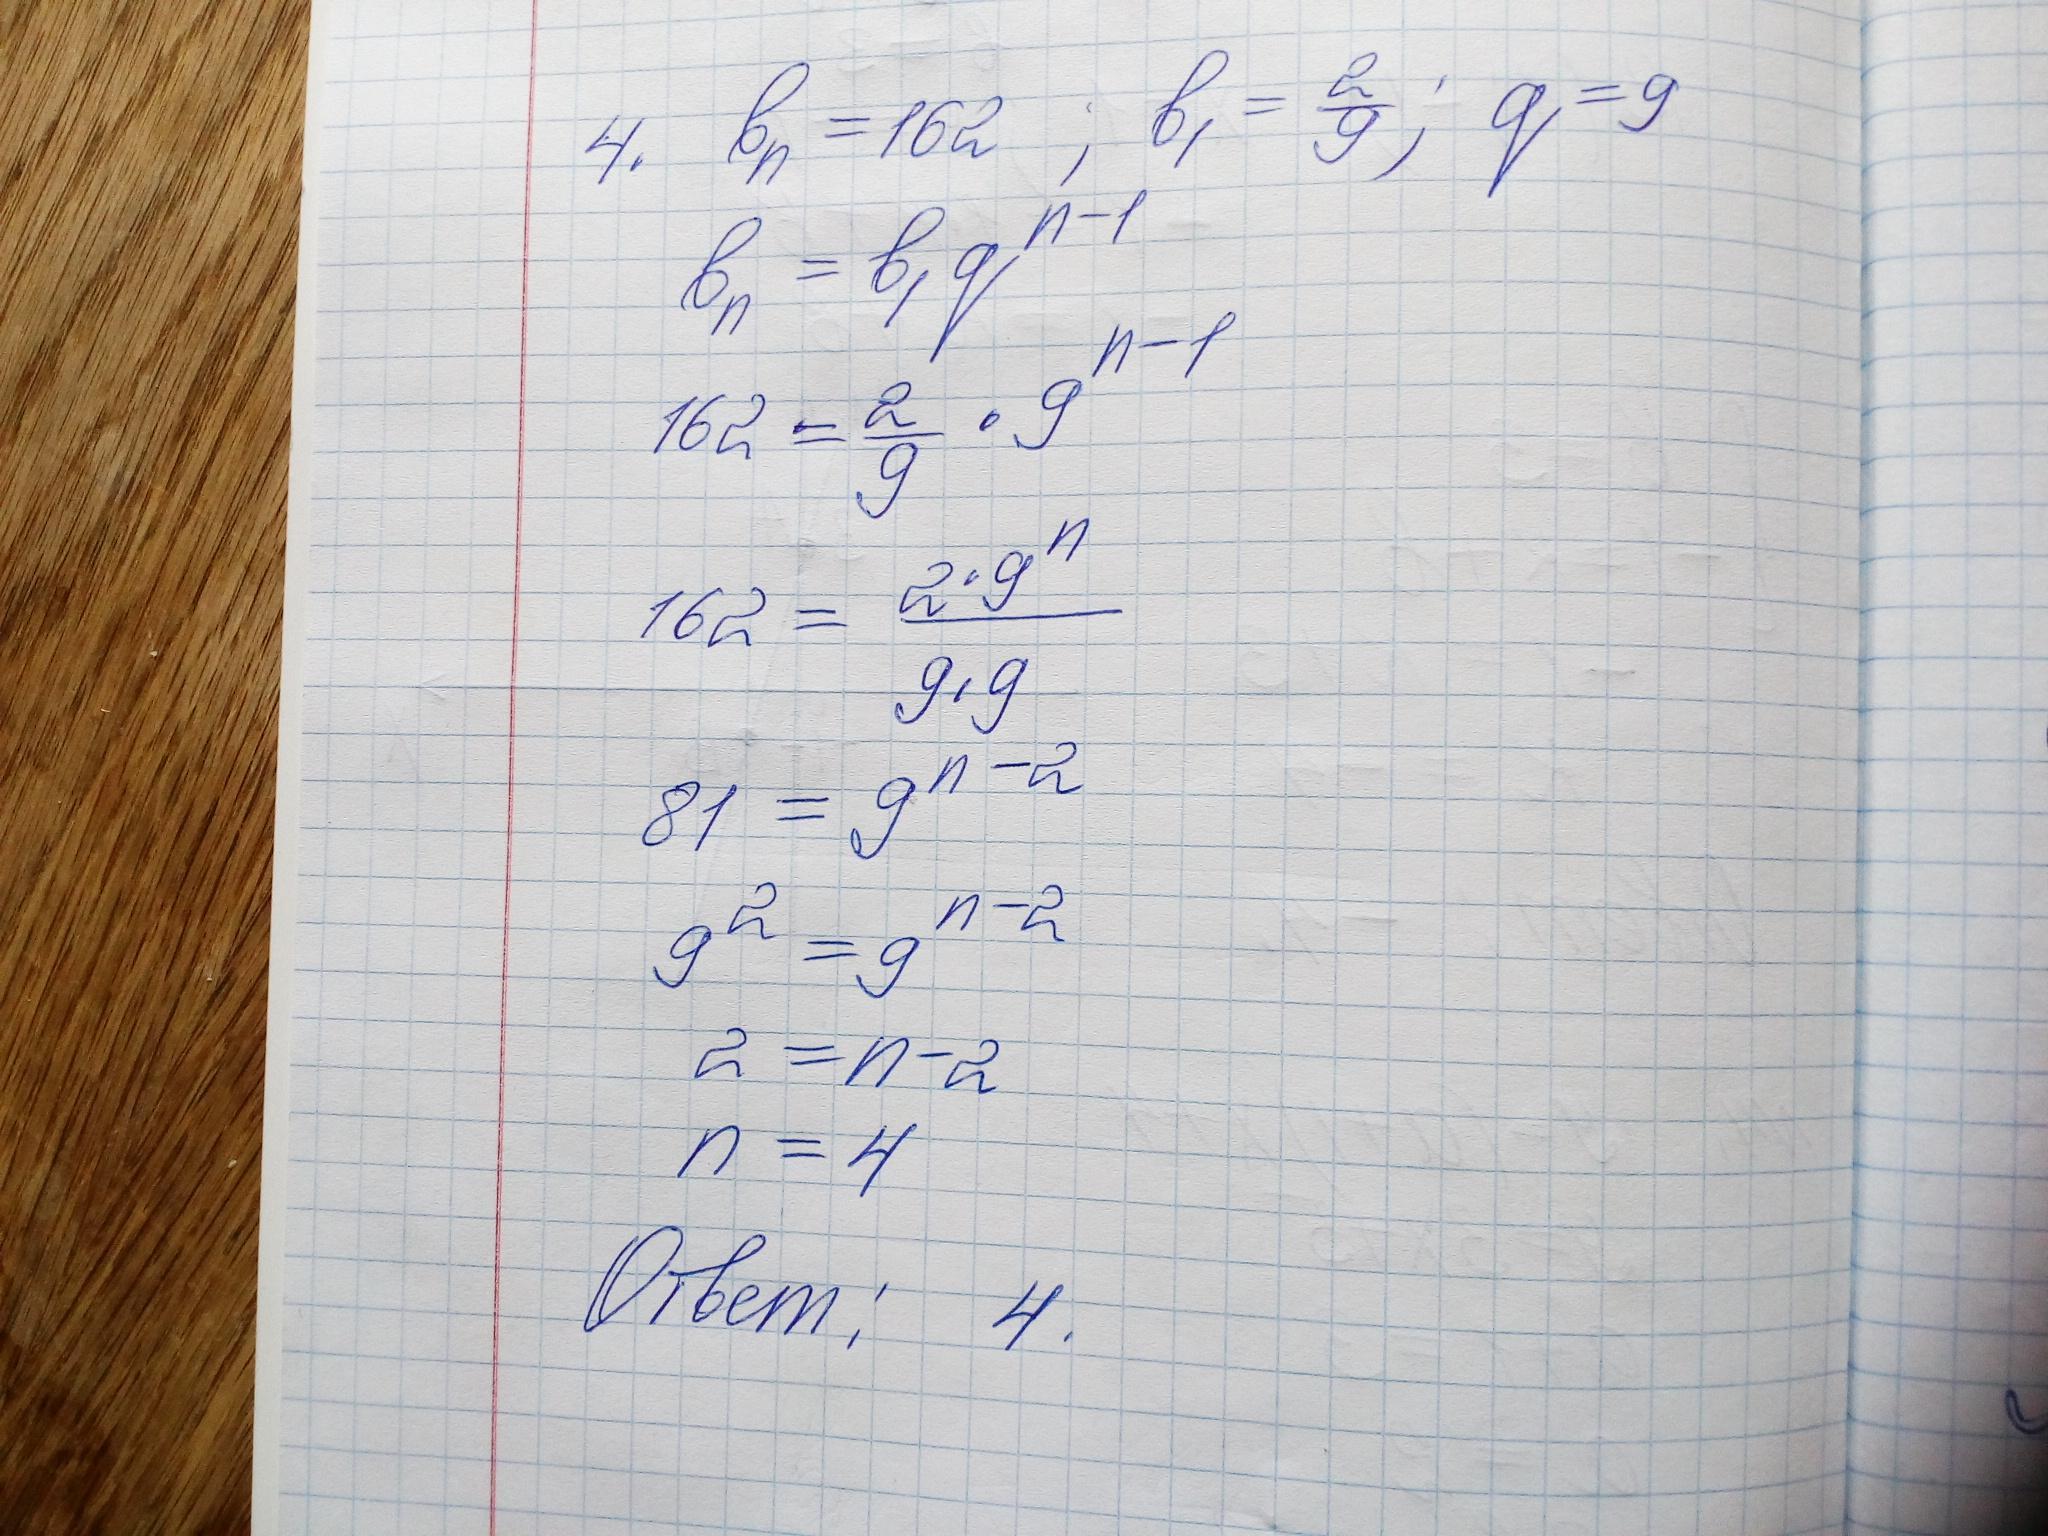 4. bₙ = 162 ; b₁ = 2/9 ; q = 9
bₙ = b₁ qⁿ⁻¹
162 = 2/9 · 9ⁿ⁻¹
162 = 2·9ⁿ / 9·9
81 = 9ⁿ⁻²
9² = 9ⁿ⁻²
2 = n-2
n = 4
Ответ: 4.